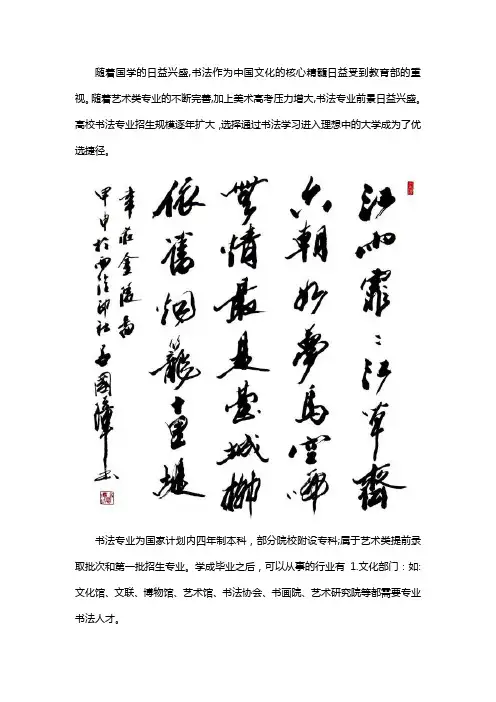 随着国学的日益兴盛,书法作为中国文化的核心精髓日益受到教育部的重
视。随着艺术类专业的不断完善,加上美术高考压力增大,书法专业前景日益兴盛。
高校书法专业招生规模逐年扩大,选择通过书法学习进入理想中的大学成为了优
选捷径。
江雨霏〻江草齊
六朝如夢鳥空啼
無情最是臺城柳
依舊烟籠十里堤
韋莊金陵圖
甲申於西泠印社
书法专业为国家计划内四年制本科，部分院校附设专科;属于艺术类提前录
取批次和第一批招生专业。学成毕业之后，可以从事的行业有 1.文化部门：如:
文化馆、文联、博物馆、艺术馆、书法协会、书画院、艺术研究院等都需要专业
书法人才。